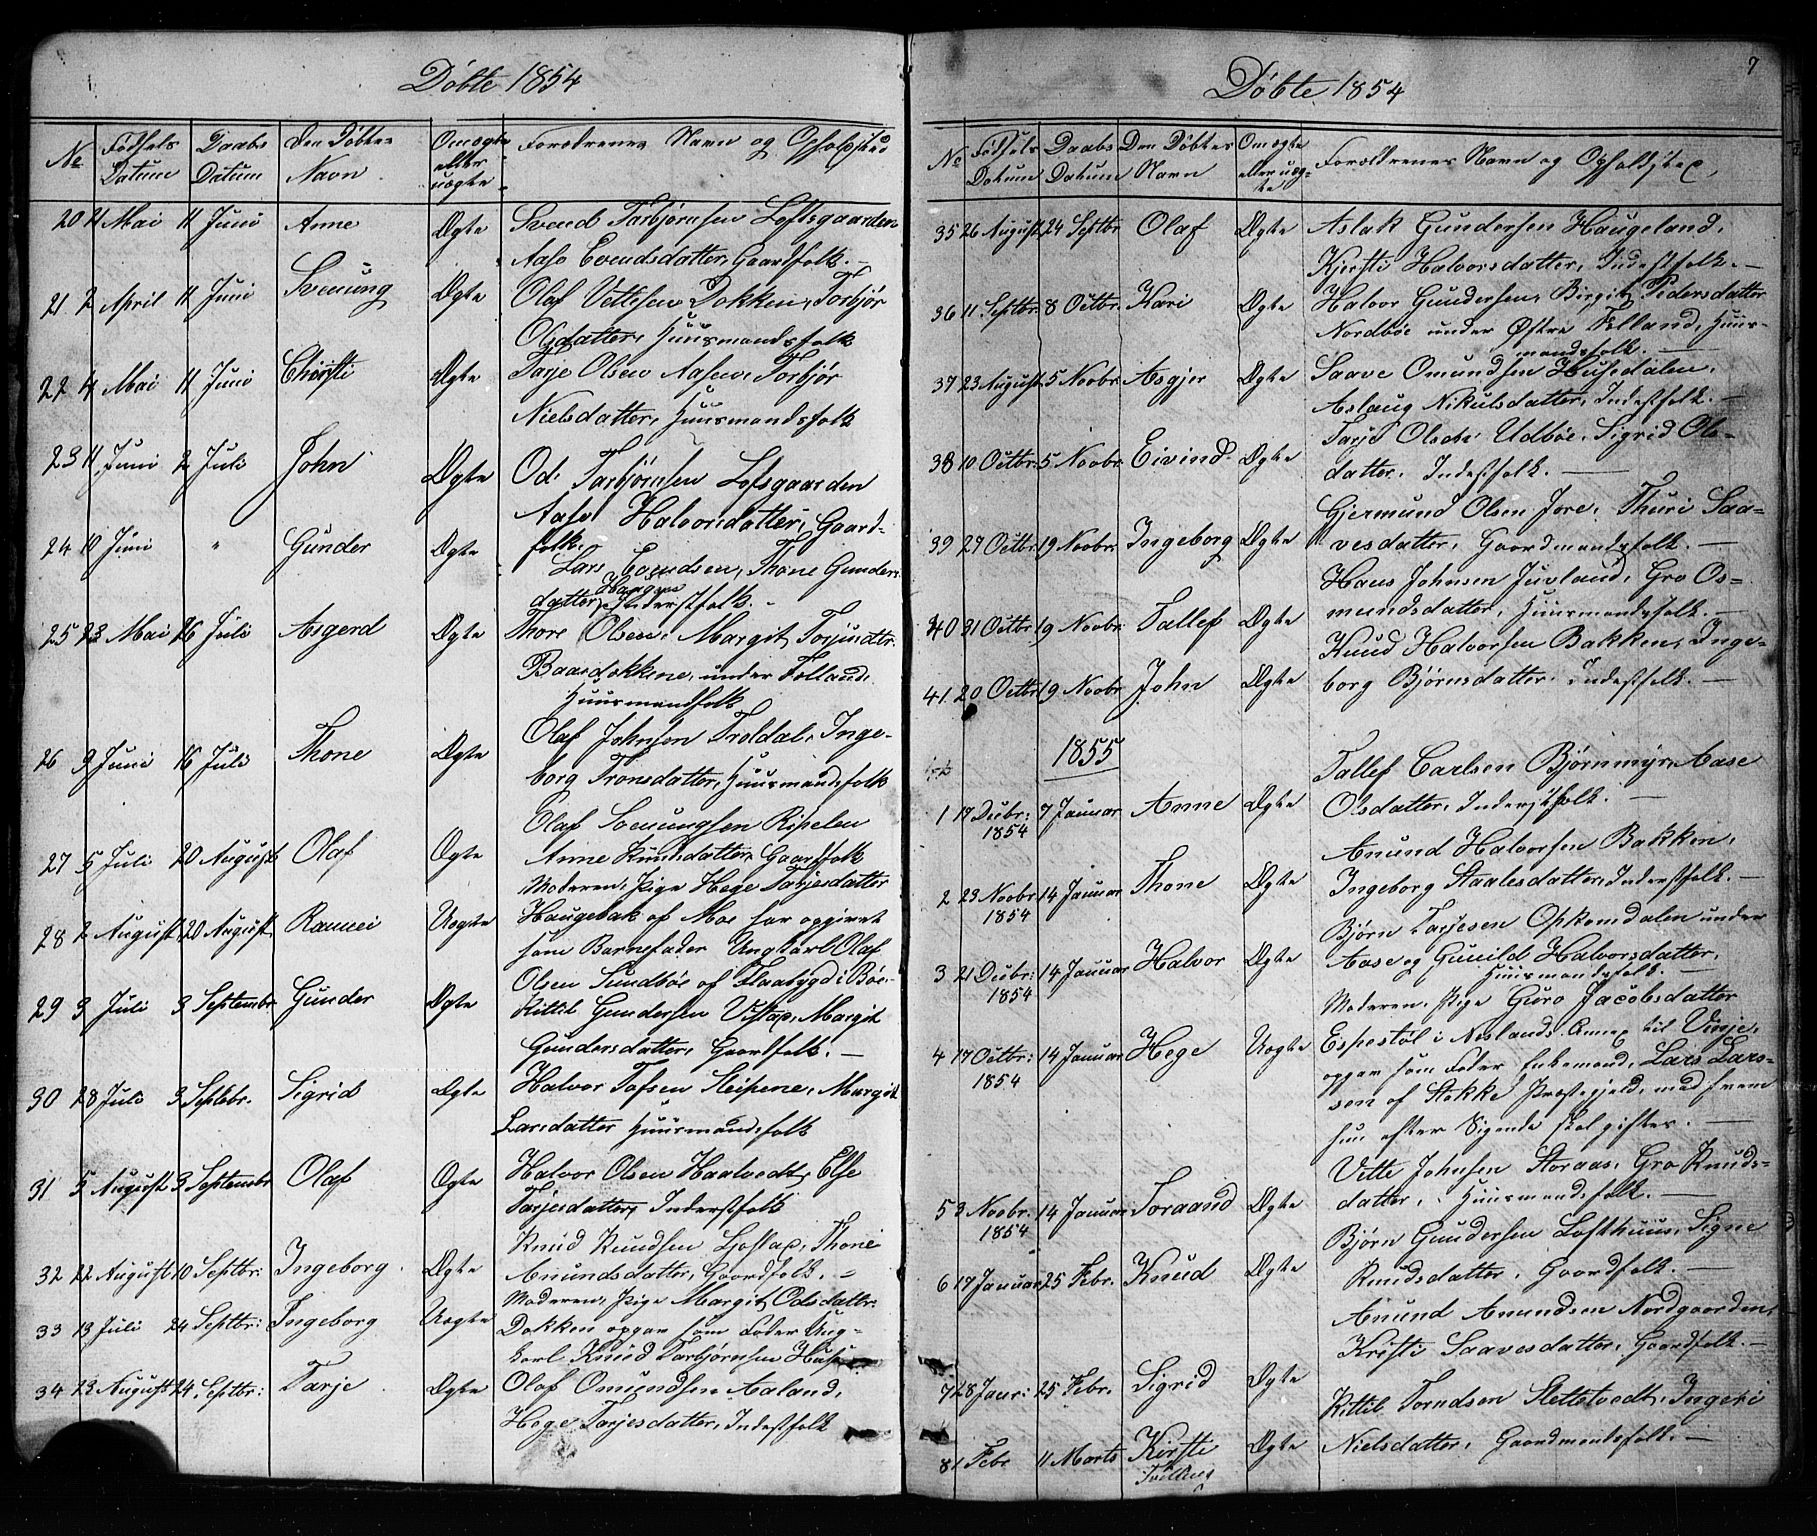 Døbte 1854
No Fødsels Datum Daabs Datum Den Døbtes Navn Om ægte eller uægte Forældrenes Navn og Opholdssted
20 4 Mai 11 Juni Anne Ægte Svend Tarbjørnsen Loftsgaarden
Aase Evendsdatter, Gaardfolk.
21 2 April 11 Juni Svenung Ægte Olaf Vettesen Dokken, Torbjør
Olsdatter, Huusmandsfolk
22 4 Mai 11 Juni Christi Ægte Tarje Olsen Aasen, Torbjør
Nielsdatter, Huusmandsfolk
23 11 Juni 2 Juli John Ægte Od: Tarbjørnsen Loftsgaarden
Aase Halvorsdatter, Gaard-
folk.
24 10 Juni " Gunder Ægte Lars Evendsen, Thone Gunders
datter, Haugen Inderstfolk.
25 23 Mai 16 Juli Asgerd Ægte Thore Olsen, Margit Torjusdatr.
Baasdokkene, under Felland,
Huusmandfolk
26 9 Juni 16 Juli Thone Ægte Olaf Johnsen Troldal, Inge-
borg Tronsdatter, Huusmandsfolk
27 5 Juli 20 August Olaf Ægte Olaf Svenungsen Ripelen
Anne Knudsdatter, Gaardfolk
28 2 August 20 August Ramei Uægte Moderen, Pige Hege Tarjesdatter
Haugebak af Moe har opgivet
som Barnefader Ungkarl Olaf
Olsen Sundbøe af Flaabygd i Bøe.
29 3 Juli 3 Septembr. Gunder Ægte Kittil Gundersen Vistap, Margit
Gundersdatter, Gaardfolk.
30 28 Juli 3 Septebr. Sigrid Ægte Halvor Tofsen Sleipene, Margit
Larsdatter Huusmandsfolk
31 5 August 3 Septembr Olaf Ægte Halvor Olsen Haatvedt, Else
Tarjesdatter, Inderstfolk
32 22 August 10 Septbr: Ingeborg Ægte Knud Knudsen Ljostap, Thone
Amundsdatter, Gaardfolk.
33 13 Juli 24 Septbr: Ingeborg Uægte Moderen, Pige Margit Odsdattr.
Dokken opgav som Fader Ung-
karl Knud Tarbjørnsen Huse
34 23 August 24 Septbr: Tarje Ægte Olaf Omundsen Aaland,
Hege Tarjesdatter, Indestfolk
7
Døbte 1854
No Fødsels Datum Daabs Datum Den Døbtes Navn Om ægte eller uæg-te Forældrenes Navn og Opholdsted,
35 26 August 24 Septbr Olaf Ægte Aslak Gundersen Haugeland,
Kjersti Halvorsdatter, Indestfolk.
36 11 Septbr: 8 Octbr. Kari Ægte Halvor Gundersen, Birgit Pedersdatter
Nordbøe under Østre Felland, Huus-
mandsfolk.
37 23 August 5 Novbr. Asgjer Ægte Saave Omundsen Husedalen,
Aslaug Nikulsdatter, Indestfolk.
38 10 Octbr: 5 Novbr Eivind Ægte Tarje Olsen Udbøe, Sigrid Ols-
datter, Indestfolk.
39 27 Octbr. 19 Novbr. Ingeborg Ægte Gjermund Olsen Jore, Thuri Saa-
vesdatter, Gaardmandsfolk.
40 31 Octbr 19 Novbr Tallef Ægte Hans Johnsen Juvland, Gro Os-
mundsdatter, Huusmandsfolk.
41. 20 Octbr 19 Novbr John Ægte Knud Halvorsen Bakken, Inge-
borg Bjørnsdatter, Indestfolk.
1855
1 17 Decbr: 1854 7 Januar Anne Ægte Tallef Carlsen Bjørnmyr, Aase
Olsdatter, Inderstfolk.
2 23 Novbr 1854 14 Januar Thone Ægte Anund Halvorsen Bakken,
Ingeborg Staalesdatter, Inderstfolk.
3 21 Decbr: 1854 14 Januar Halvor Ægte Bjørn Tarjesen Opkomdalen under
Aase og Gunild Halvorsdatter,
Huusmandsfolk.
4 17 Octbr: 1854 14 Januar Hege Uægte Moderen, Pige Guro Jacobsdatter
Espestøl i Neslands Anex til Vinje,
opgav som Fader Enkemand, Lars Lars-
sen af Stokke Præstegjeld, med hvem
hun efter Sigende skal giftes.
5 3 Novbr. 1854 14 Januar Toraand Ægte Vitte Johnsen Storaas, Gro Knuds-
datter, Huusmandsfolk.
6 17 Januar 25 Febr. Knud Ægte Bjørn Gundersen Lofthuus, Signe
Knudsdatter, Gaardfolk.
7 28 Janr: 25 Febr. Sigrid Ægte Anund Anundsen Nordgaarden,
Kristi Saavesdatter, Gaardfolk.
8 1 Febr 11 Marts Kirsti Tvilling Ægte Kittil Torndsen Slettetvedt, Ingeri
Nielsdatter, Gaardmandsfolk.